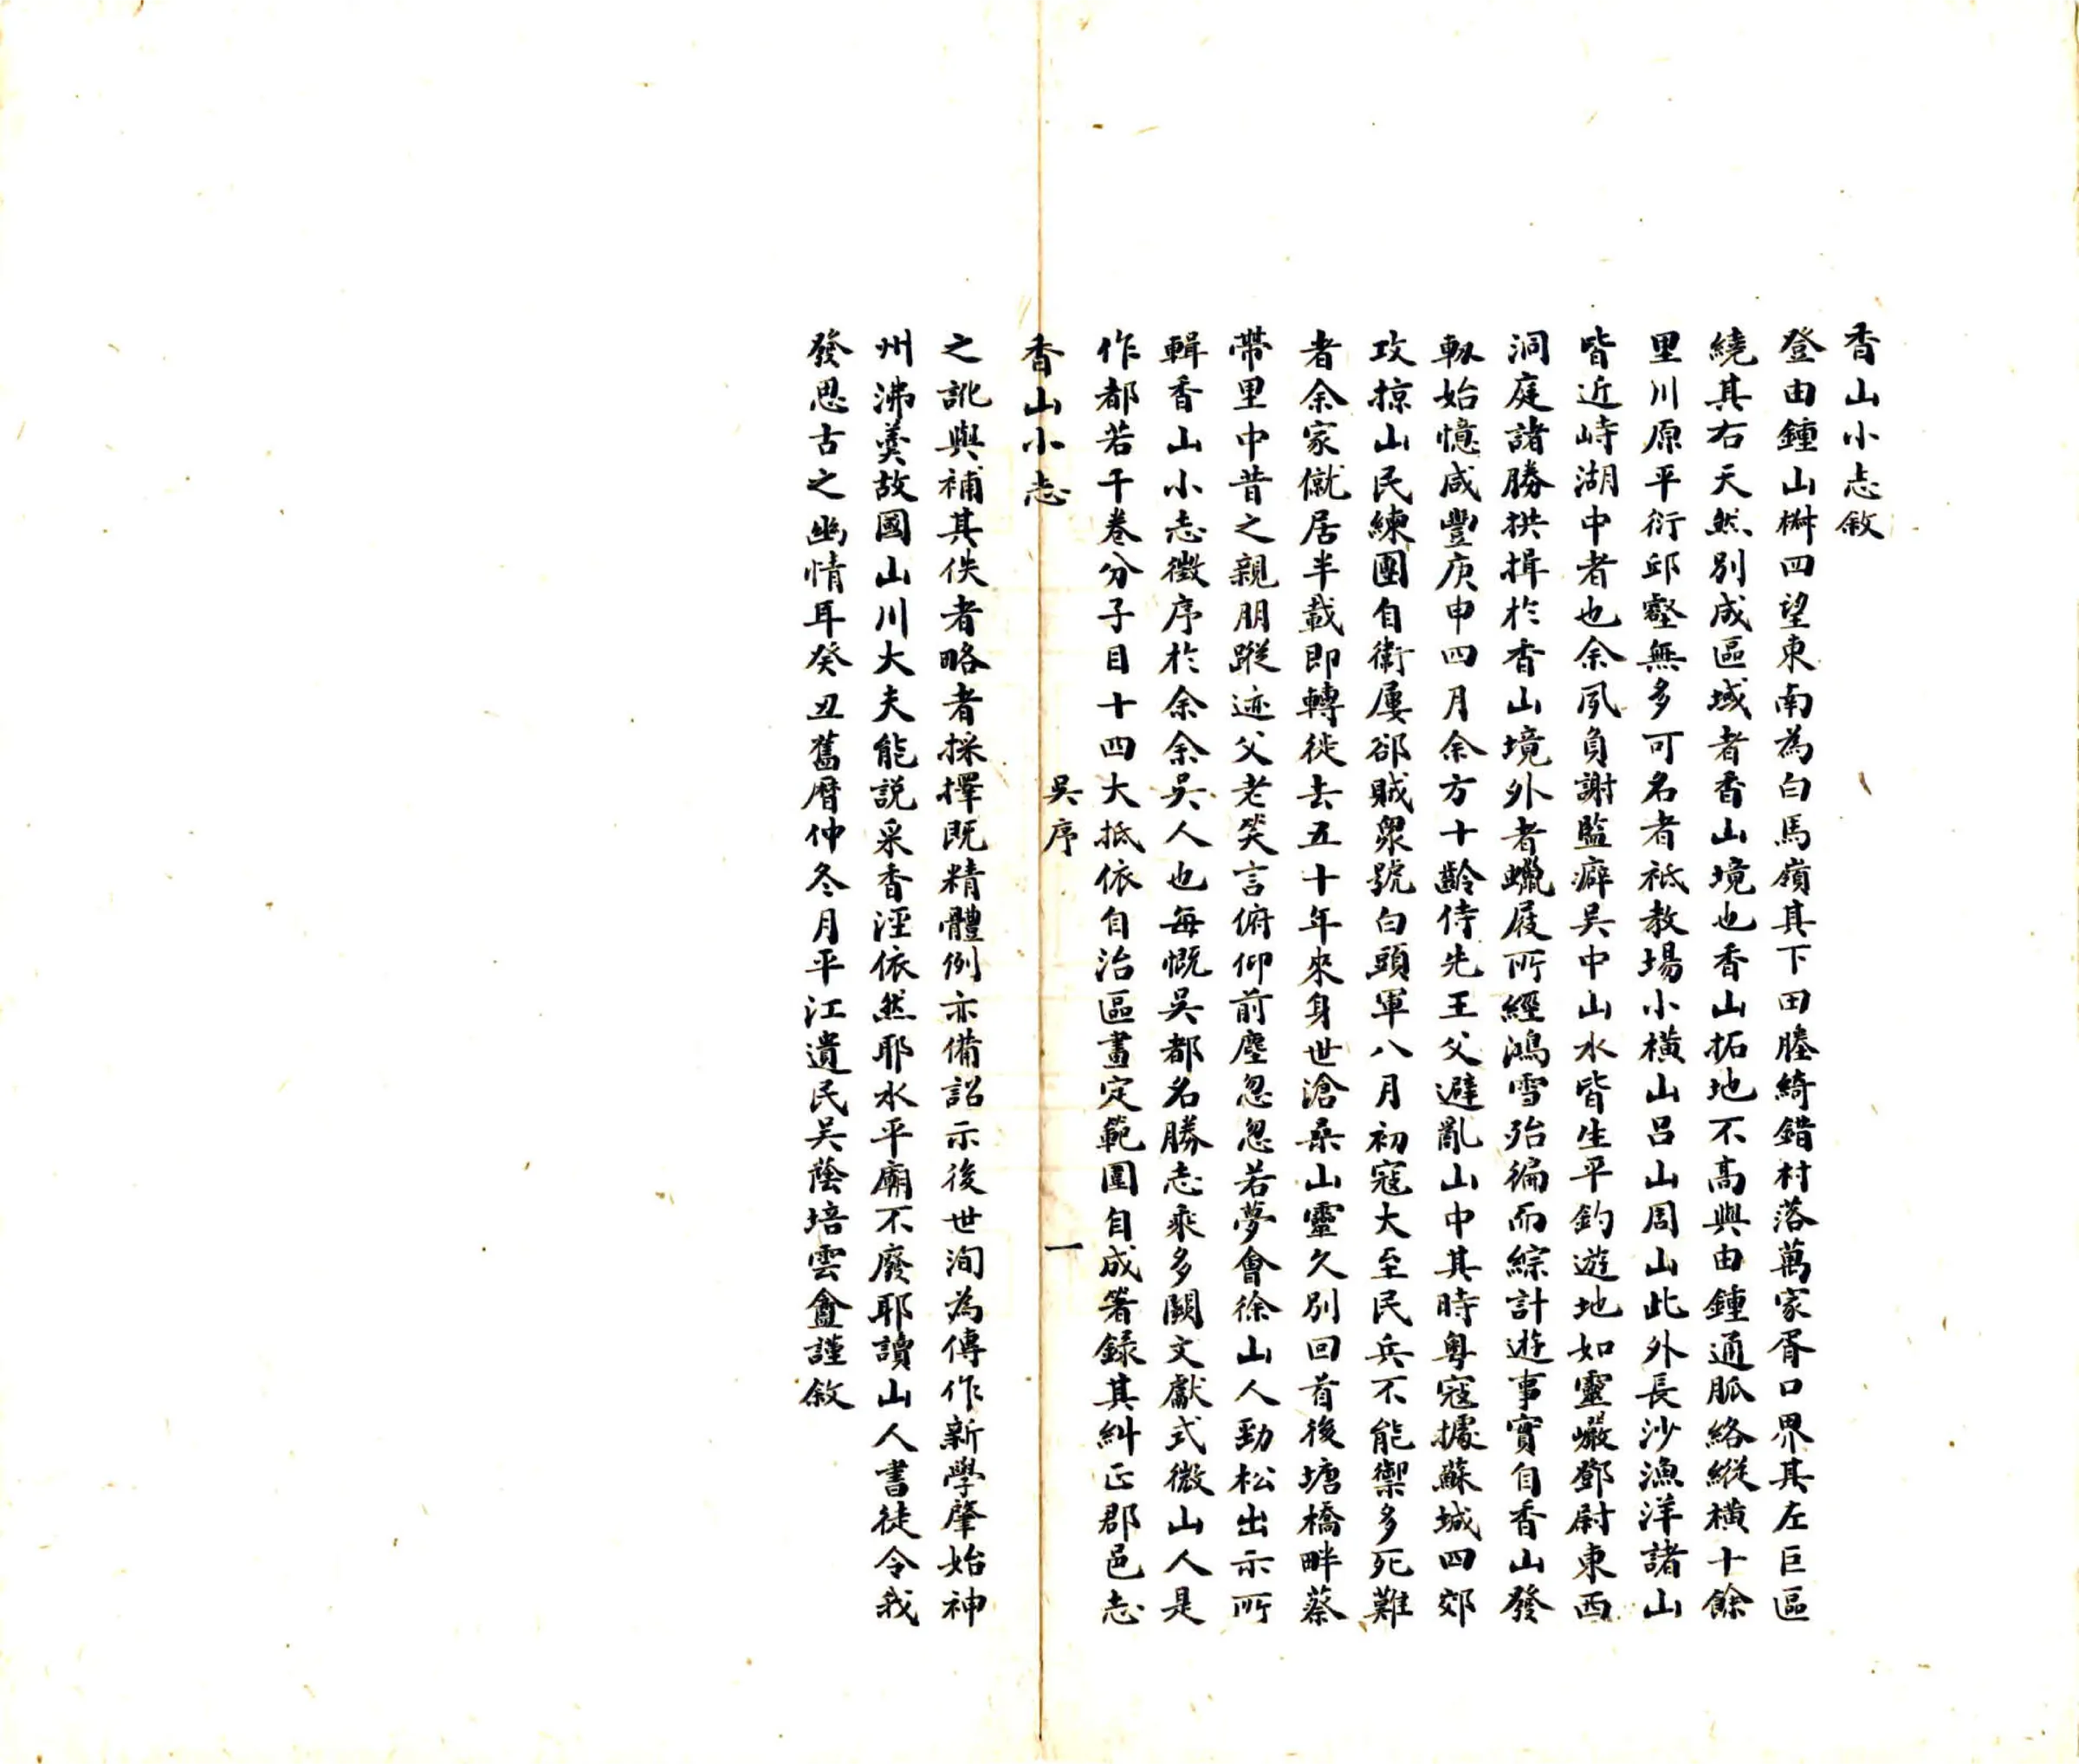 香山小志敘
登由鍾山椒四望東南為白馬嶺其下田塍綺錯村落萬家胥口界其左巨區
繞其右天然別成區域者香山境也香山拓地不高與由鍾通脈絡縱橫十餘
里川原平衍邱壑無多可名者祗教場小橫山呂山周山此外長沙漁洋諸山
皆近峙湖中者也余夙負謝監癖吳中山水皆生平釣遊地如靈巖鄧尉東西
洞庭諸勝拱揖於香山境外者蠟屐所經鴻雪殆徧而綜計遊事實自香山發
軔始憶咸豐庚申四月余方十齡侍先王父避亂山中其時粵寇據蘇城四郊
攻掠山民練團自衛屢卻賊眾號白頭軍八月初寇大至民兵不能禦多死難
者余家僦居半載即轉徙去五十年來身世滄桑山靈久別回首後塘橋畔蔡
帶里中昔之親朋蹤迹父老笑言俯仰前塵忽忽若夢會徐山人勁松出示所
輯香山小志徵序於余余吳人也每慨吳都名勝志乘多闕文獻式微山人是
作都若干卷分子目十四大抵依自治區畫定範圍自成箸錄其糾正郡邑志
香山小志 吳序 一
之訛與補其佚者略者採擇既精體例亦備詔示後世洵為傳作新學肇始神
州沸羹故國山川大夫能說采香涇依然耶水平廟不廢耶讀山人書徒令我
發思古之幽情耳癸丑舊曆仲冬月平江遺民吳蔭培雲盦謹敘